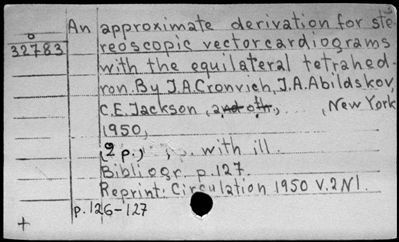 An approximate derivation for ste
o
32783
reoscopic vectorcardiograms
with the equilateral tetrahed-
ron. By J.A.Cronvich, J.A.Abildskov,
C.E.Jackson, and oth., New York
1950,
(2 p.) with ill.
Bibliogr. p.127.
Reprint: Circulation 1950 V.2 N1.
p.126-127
+